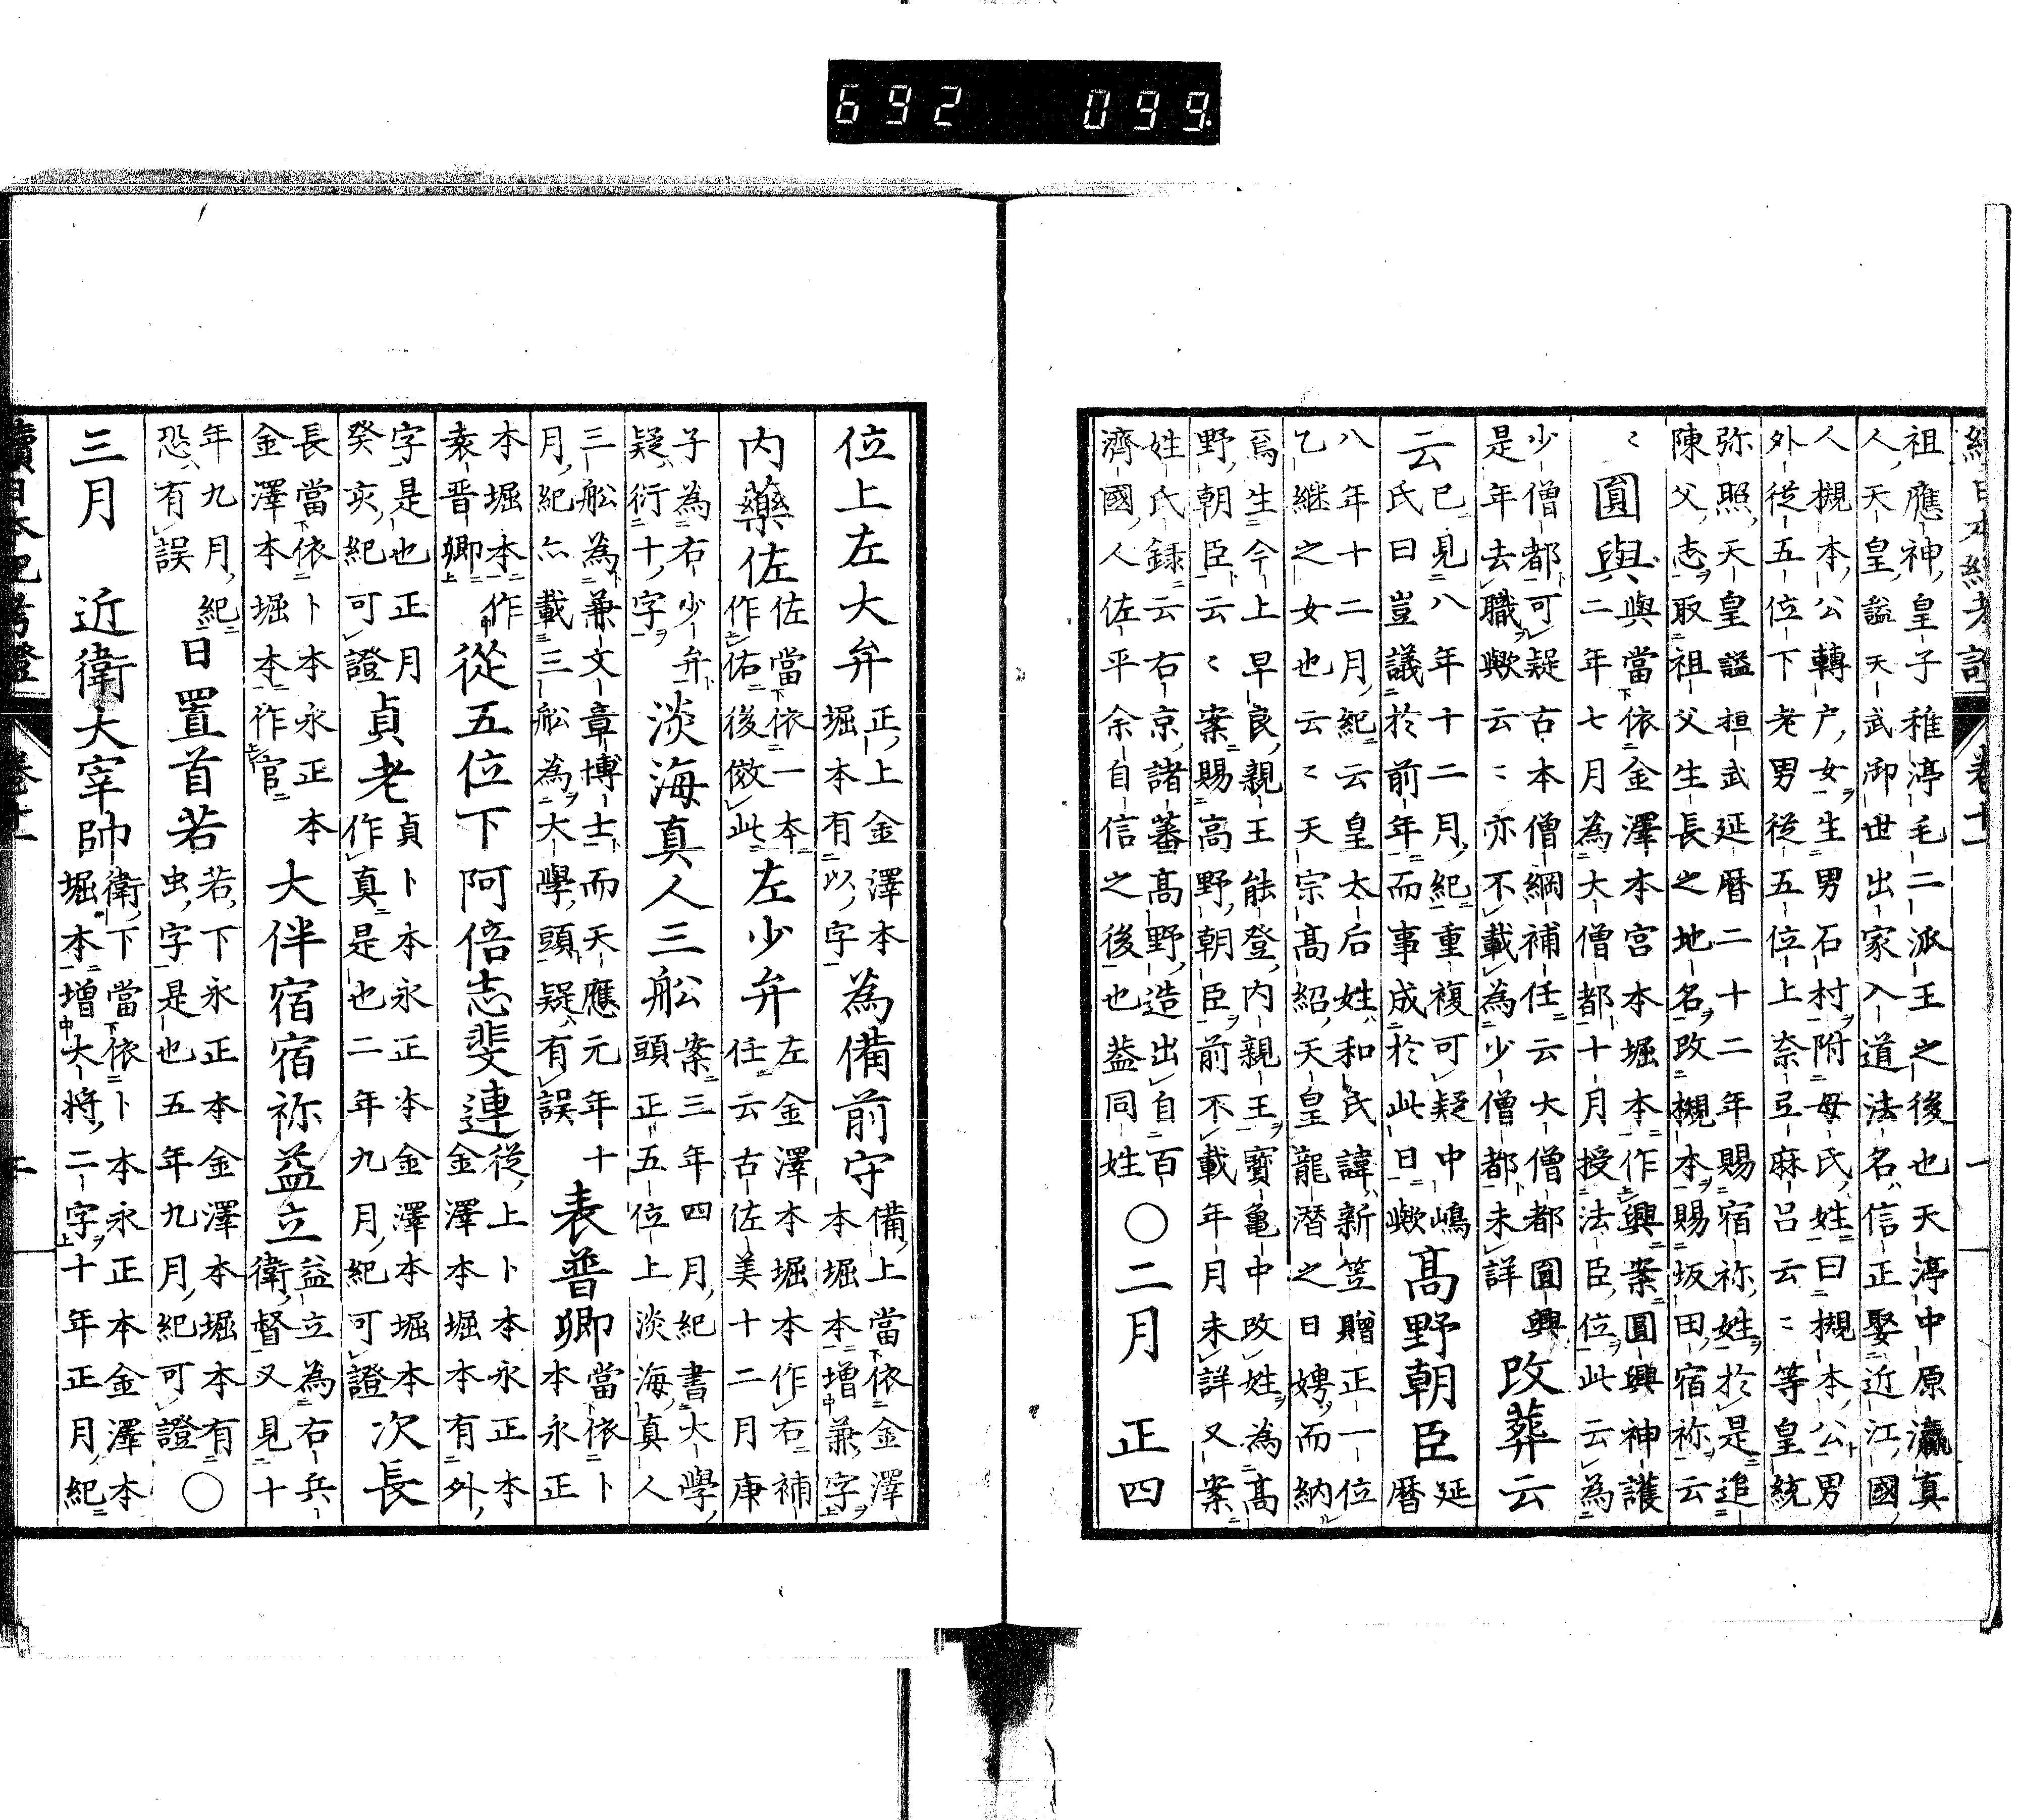 692 099
祖應神皇子稚渟毛二派王之後也天渟中原瀛真
人天皇謚天武御世出家入道法名信正娶近江國
人槻本公轉戸女生男石村附母氏姓曰槻本公男
外從五位下老男從五位上奈弖麻呂云〻等皇統
弥照天皇謚桓武延曆二十二年賜宿祢姓於是追
陳父志取祖父生長之地名改槻本賜坂田宿祢云
〻 圓與與當依金澤本宮本堀本作興案圓興神護
二年七月為大僧都十月授法臣位此云為
少僧都可疑古本僧綱補任云大僧都圓興
是年去職歟云〻亦不載為少僧都未詳 改葬云
云已見八年十二月紀重複可疑中嶋
氏曰豈議於前年而事成於此日歟 髙野朝臣延曆
八年十二月紀云皇太后姓和氏諱新笠贈正一位
乙継之女也云〻天宗髙紹天皇龍潛之日娉而納
焉生今上早良親王能登內親王寶亀中改姓為髙
野朝臣云〻案賜高野朝臣前不載年月未詳又案
姓氏録云右京諸蕃髙野造出自百
濟國人佐平余自信之後也葢同姓 〇二月 正四
位上左大弁正上金澤本
堀本有以字 為備前守備上當依金澤
本堀本增兼字
内藥佐佐當依一本
作佑後倣此 左少弁左金澤本堀本作右補
任云古佐美十二月庚
子為右少弁
疑衍十字 淡海真人三舩案三年四月紀書大學
頭正五位上淡海真人
三舩為兼文章博士而天應元年十
月紀亦載三舩為大學頭疑有誤 表普卿當依卜
本永正
本堀本作
袁晋卿 從五位下阿倍志斐連從上卜本永正本
金澤本堀本有外
字是也正月
癸亥紀可證 貞老貞卜本永正本金澤本堀本
作真是也二年九月紀可證 次長
長當依卜本永正本
金澤本堀本作官 大伴宿宿祢益立益立為右兵
衛督又見十
年九月紀
恐有誤 日置首若若下永正本金澤本堀本有
虫字是也五年九月紀可證 〇
三月 近衛大宰帥衛下當依卜本永正本金澤本
堀本增大將二字十年正月紀
續日本紀考證 卷十一